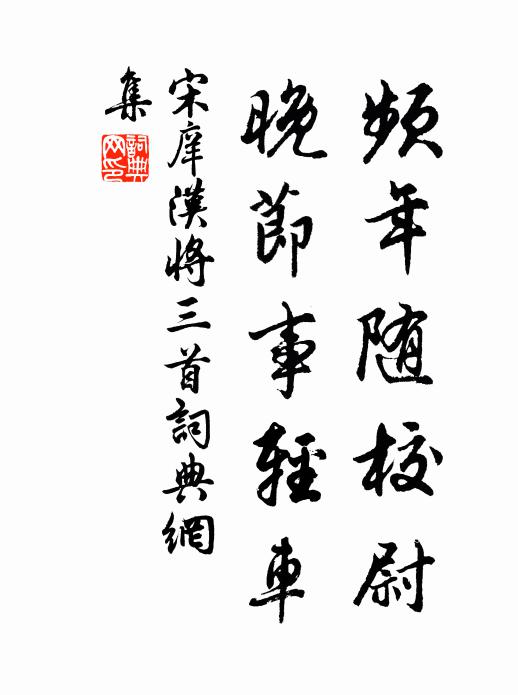 頻年随校尉
晚節事輕車
宋庠漢將三首詞典網
集
詞典網印